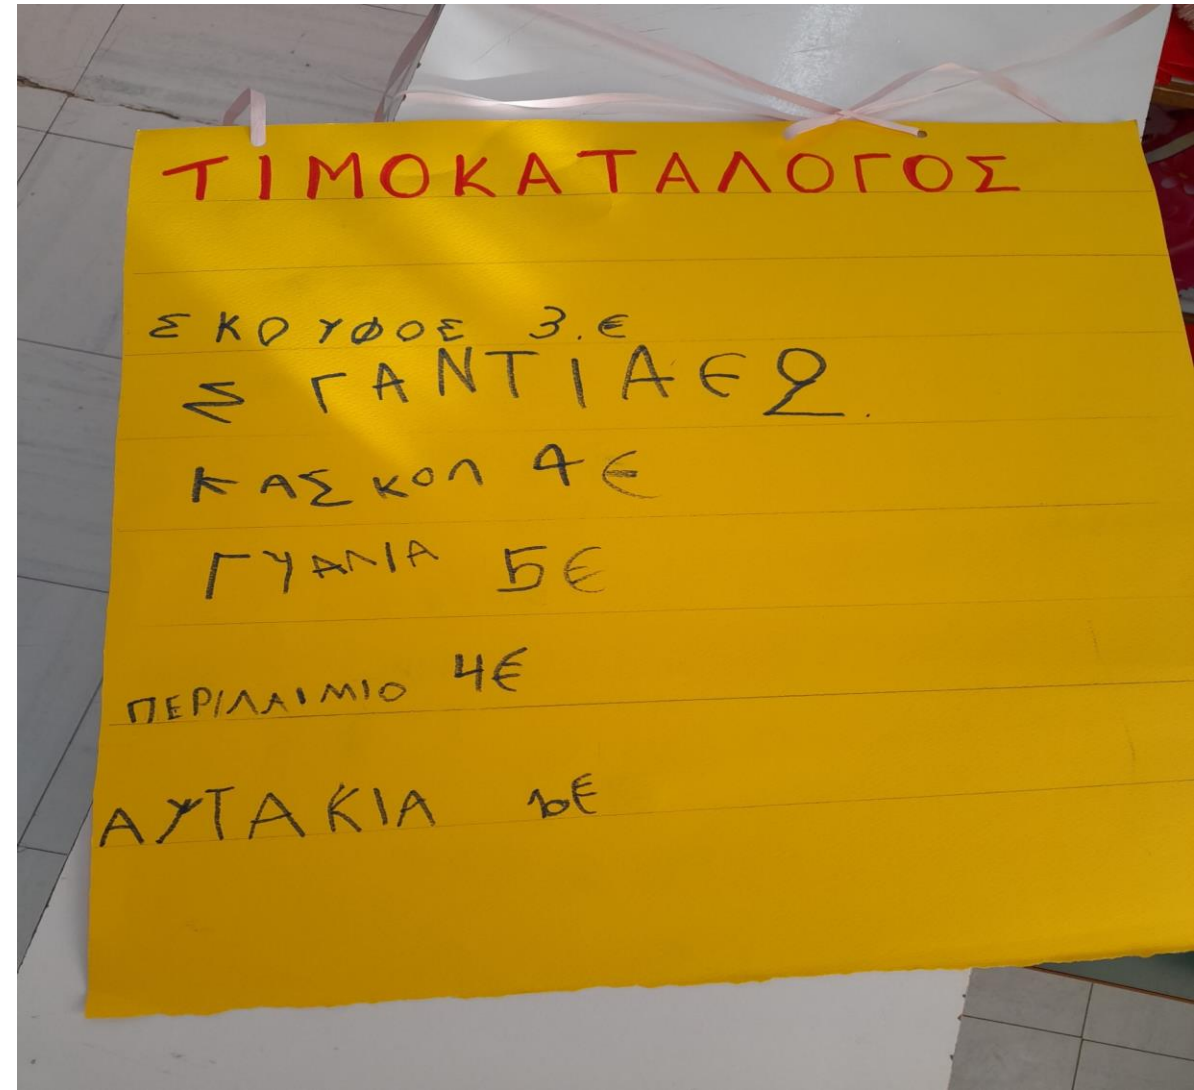 ΤΙΜΟΚΑΤΑΛΟΓΟΣ
ΣΚΟΥΦΟΣ 3.€
Σ ΓΑΝΤΙΑ €2.
ΚΑΣΚΟΛ 4€
ΓΥΑΛΙΑ 5€
ΠΕΡΙΛΑΙΜΙΟ 4€
ΑΥΤΑΚΙΑ 10€